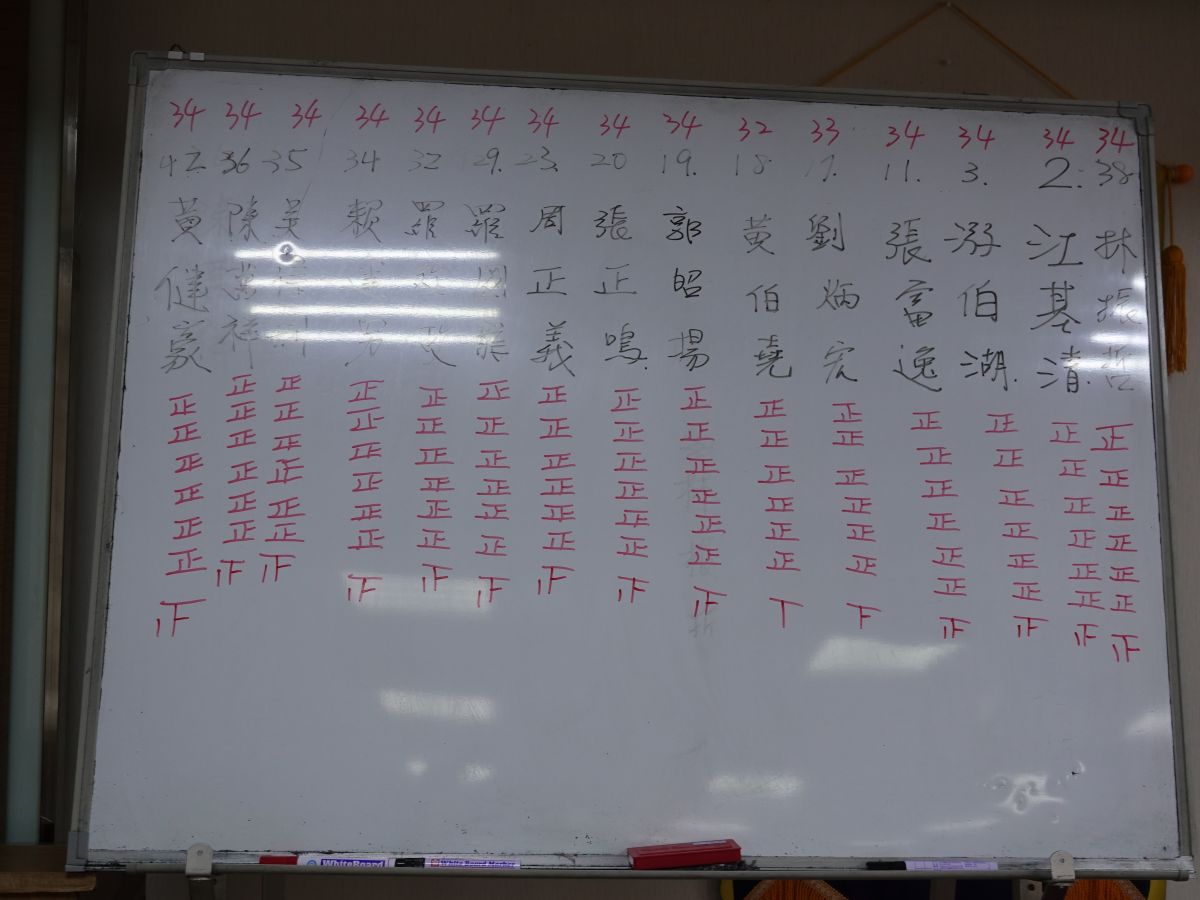 34
38
林振哲
正正正正正正
34
2.
江基清
正正正正正正
34
3.
游伯湖.
正正正正正正
34
11.
張富逸
正正正正正正
33
17.
劉炳宏
正正正正正正下
32
18.
黃伯堯
正正正正正正丅
34
19.
郭昭揚
正正正正正正
34
20
張正鳴
正正正正正正
34
23.
周正義
正正正正正正
34
29.
羅國
正正正正正正
34
32
羅
正正正正正正
34
34
賴
正正正正正正
34
35
吳
正正正正正正
34
36
陳萬祥
正正正正正正
34
42.
黃健
正正正正正正
WhiteBoard
White Board Marker